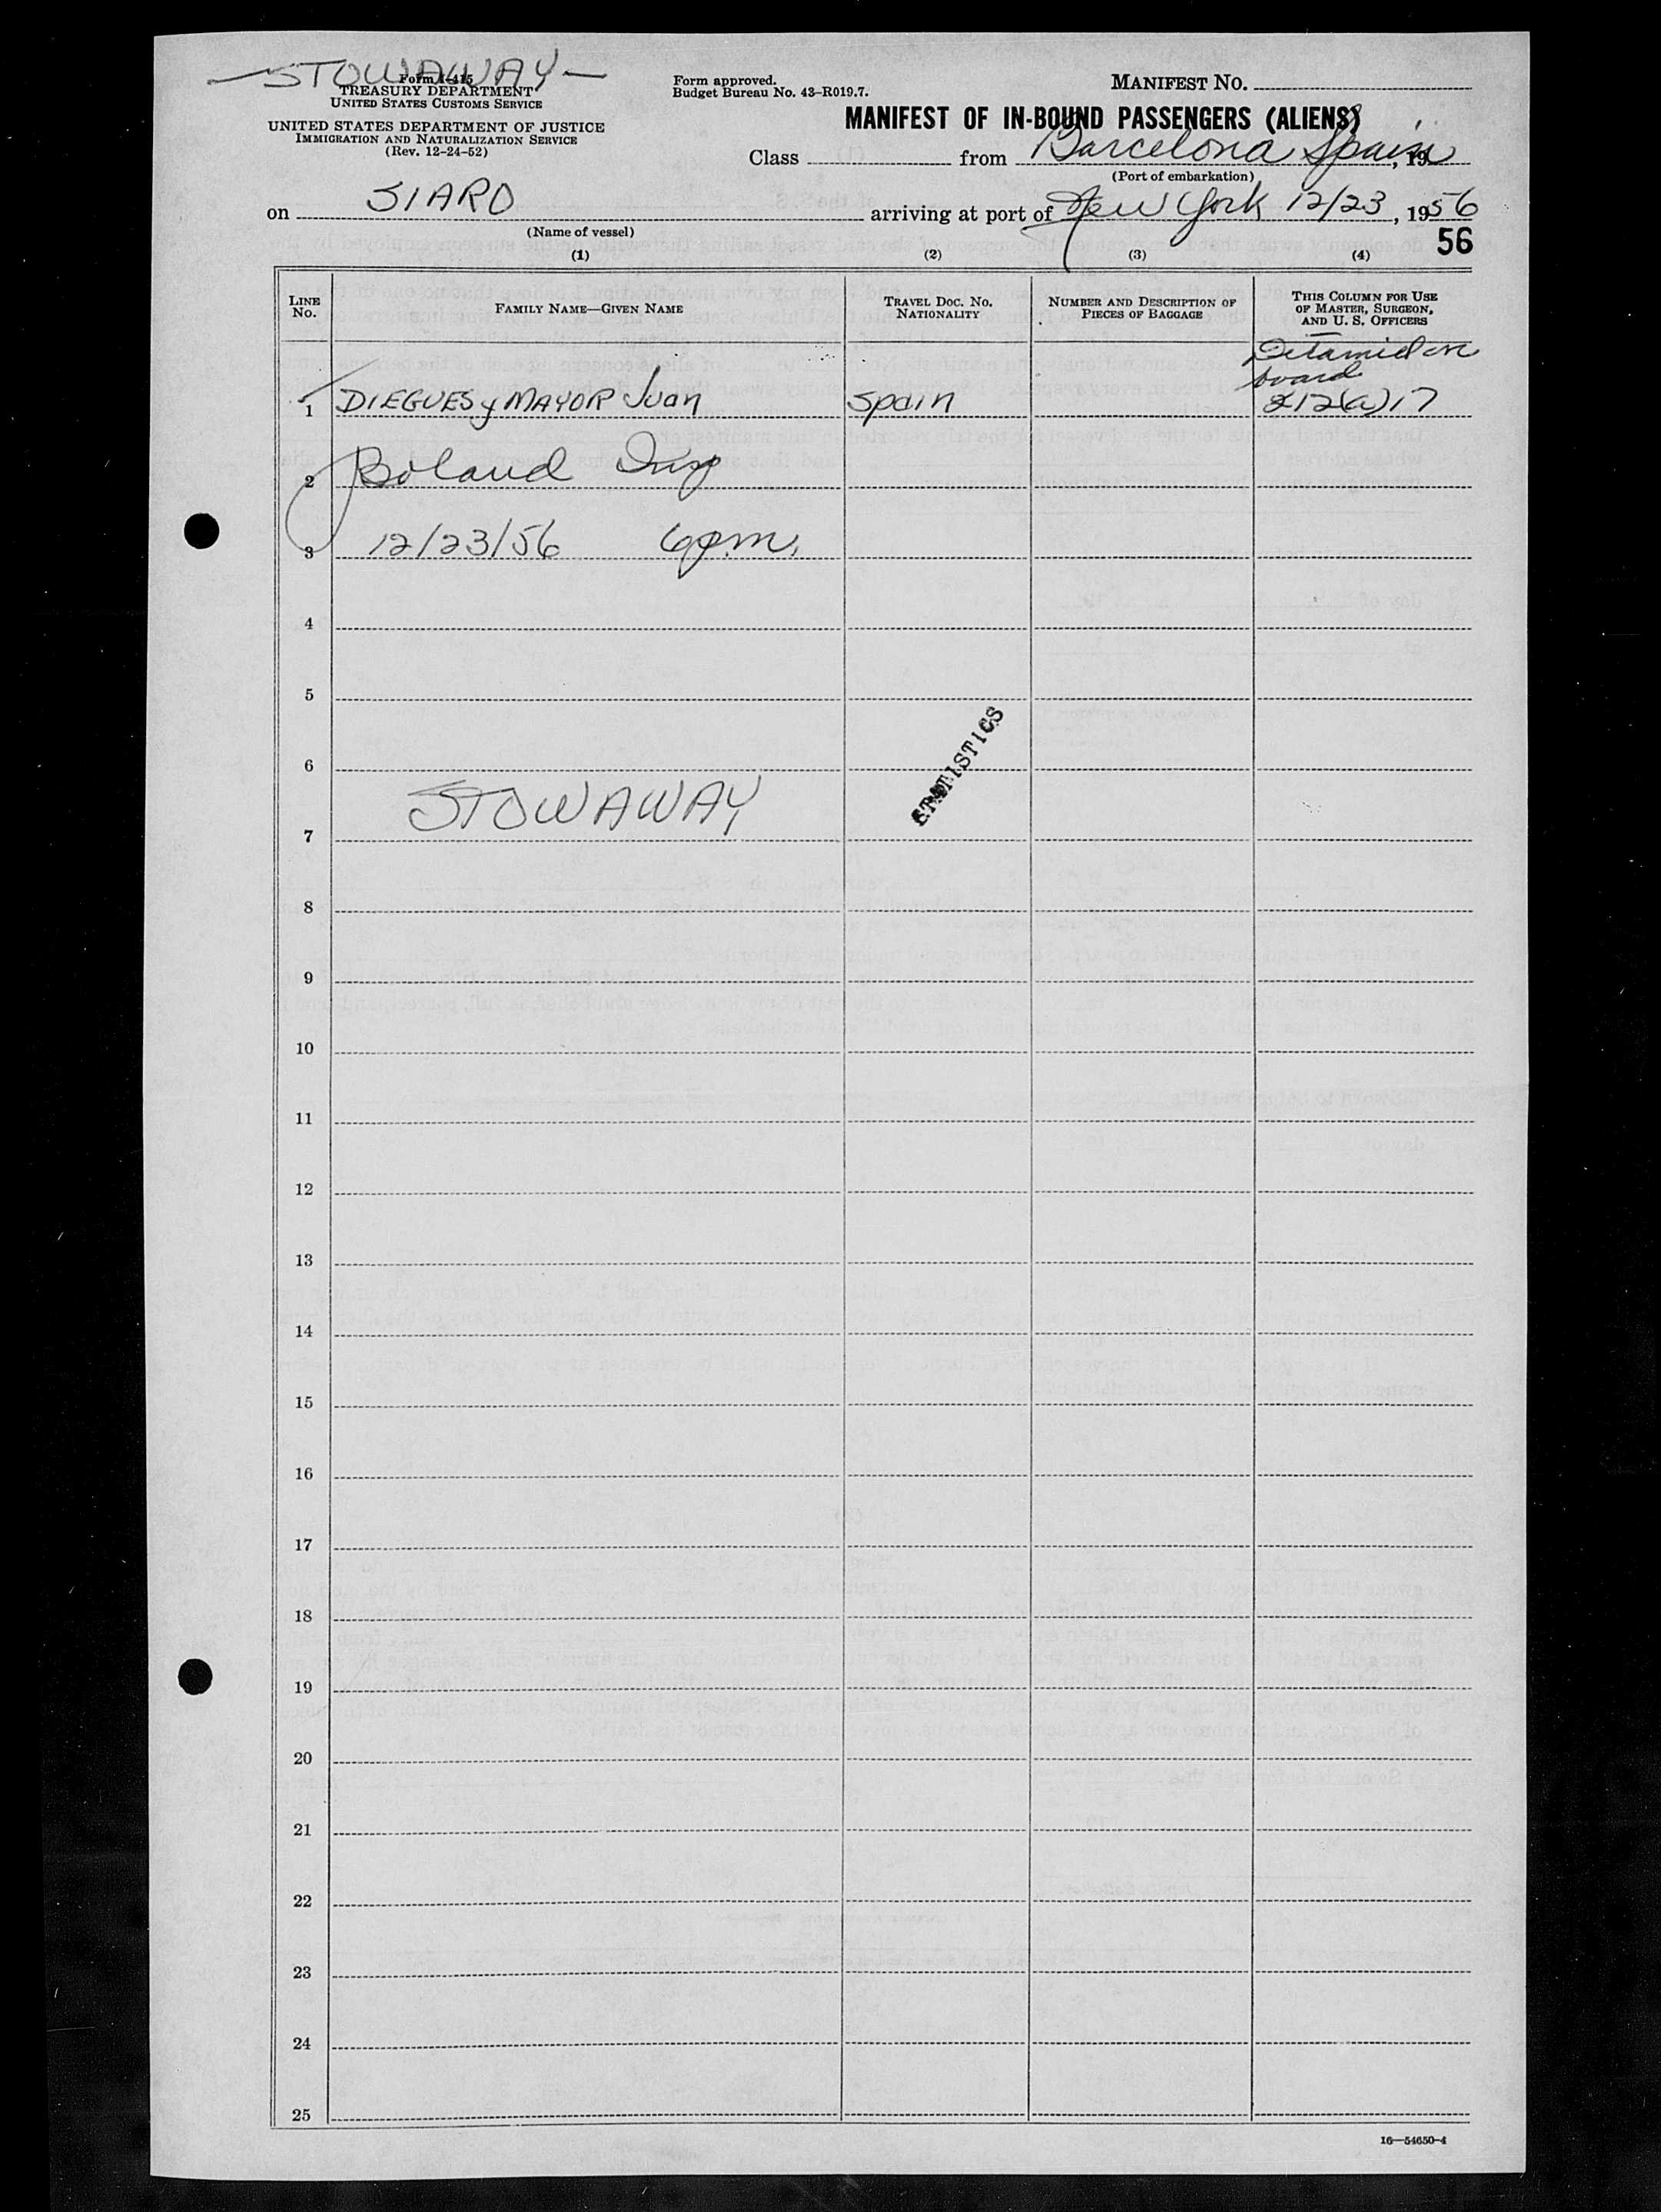 —STOWAWAY—
Form I-415
TREASURY DEPARTMENT
UNITED STATES CUSTOMS SERVICE
UNITED STATES DEPARTMENT OF JUSTICE
IMMIGRATION AND NATURALIZATION SERVICE
(Rev. 12-24-52)
Form approved.
Budget Bureau No. 43-R019.7.
MANIFEST NO.
MANIFEST OF IN-BOUND PASSENGERS (ALIENS)
Class from Barcelona Spain, 19
(Port of embarkation)
on SIARD arriving at port of New York 12/23, 1956
(Name of vessel)
56
(1) (2) (3) (4)
LINE NO.
FAMILY NAME—GIVEN NAME
TRAVEL DOC. NO.
NATIONALITY
NUMBER AND DESCRIPTION OF
PIECES OF BAGGAGE
THIS COLUMN FOR USE
OF MASTER, SURGEON,
AND U. S. OFFICERS
Detained on
board
1 DIEGUES y MAYOR Juan Spain 212(a)17
2 Boland Insp
3 12/23/56 6 p.m.
4
5
STATISTICS
6
STOWAWAY
7
8
9
10
11
12
13
14
15
16
17
18
19
20
21
22
23
24
25
16—54650-4